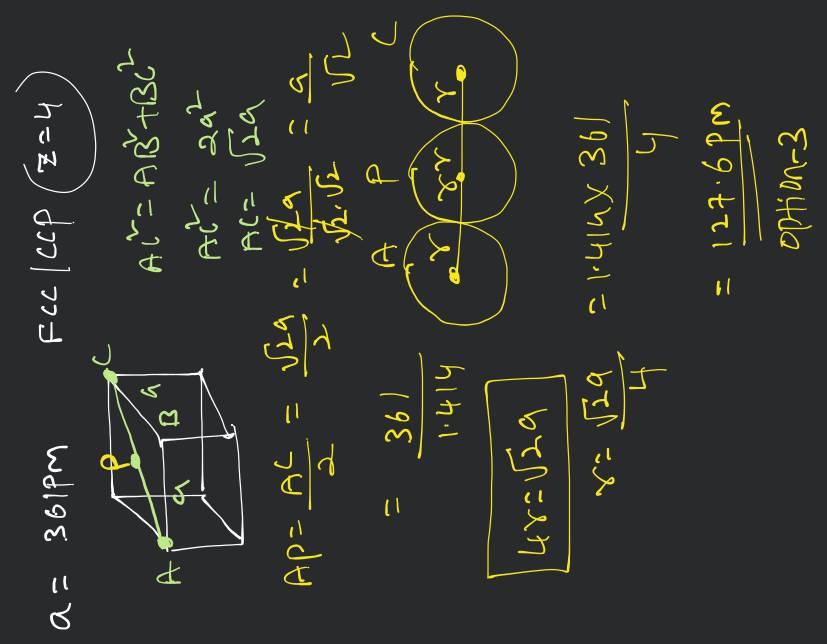 a = 361pm FCC/CCP Z=4
AC² = AB² + BC²
AC² = 2a²
AC = √2a
A
B
C
P
a
a
AP = AC/2 = √2a/2 = √2a/√2·√2 = a/√2
= 361/1.414
A P C
r r r r
4r = √2a
r = √2a/4
= 1.414 x 361/4
= 127.6 pm
option-3